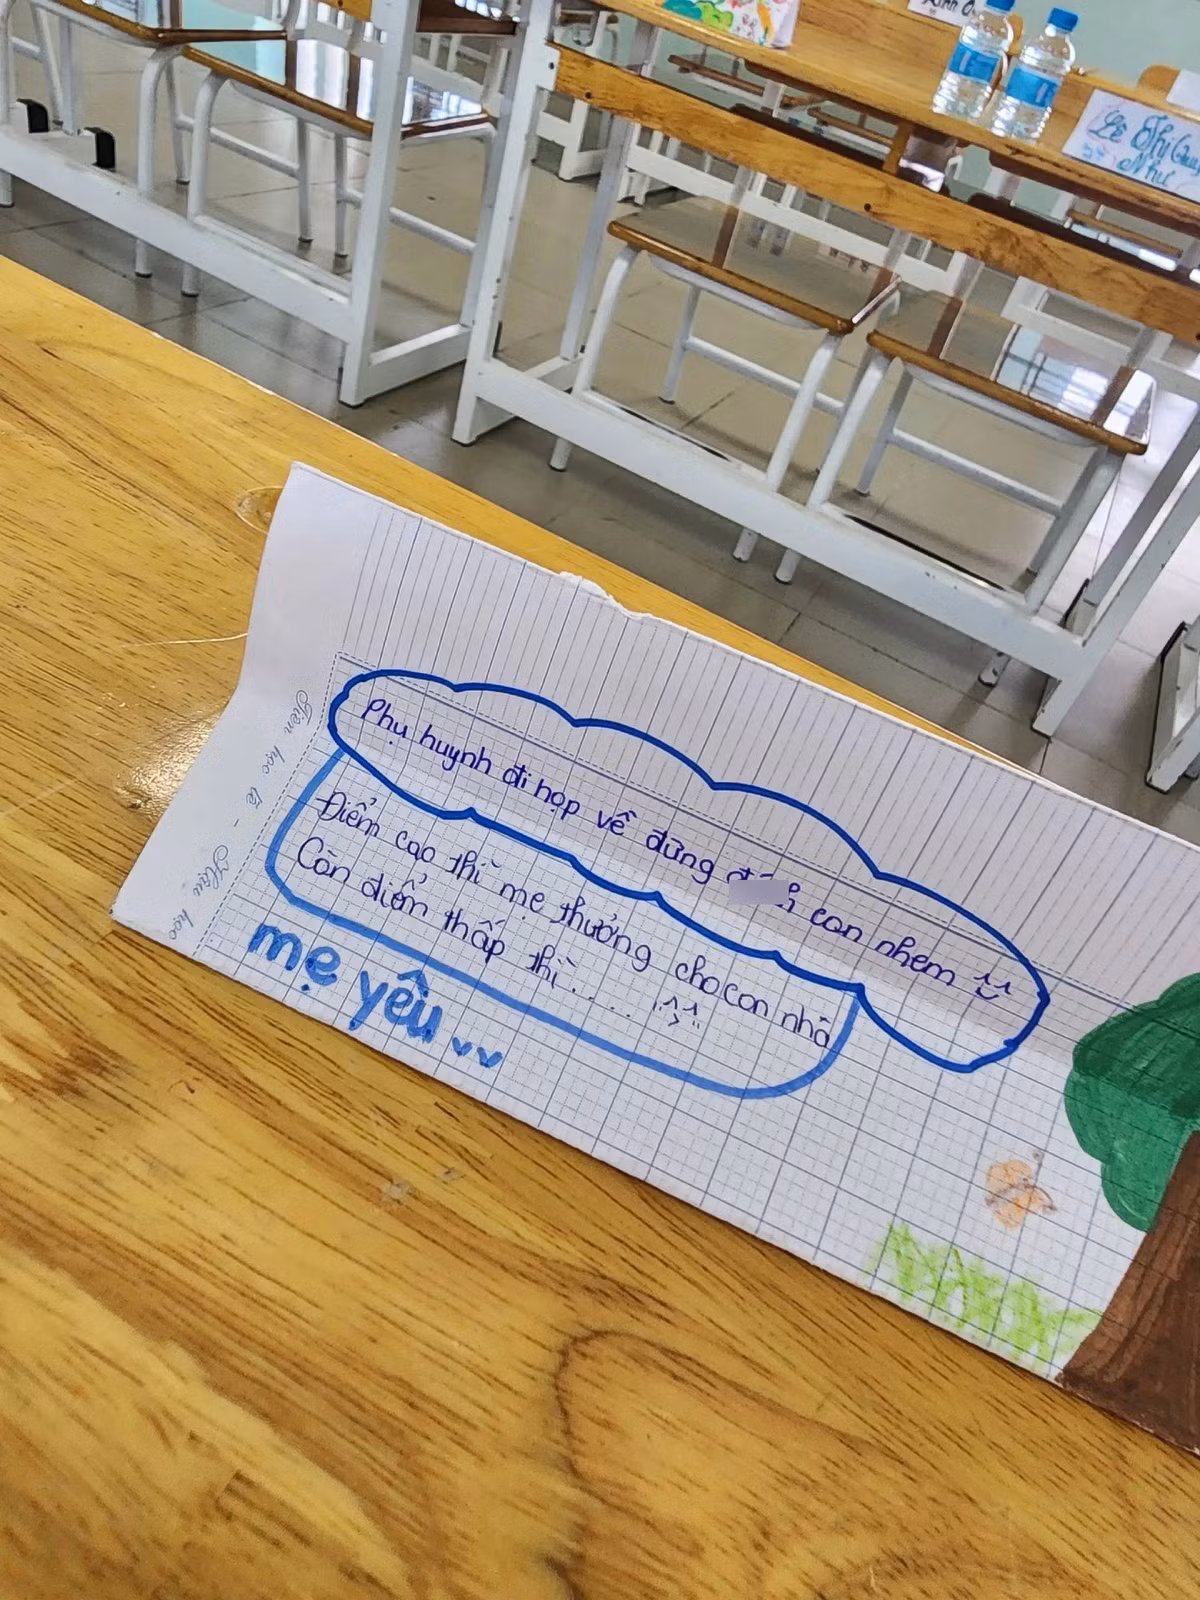 Lê Thị
Như
Phụ huynh đi họp về đừng con nhem
Điểm cao thì mẹ thưởng cho con nhá
Còn điểm thấp thì....
mẹ yêu
Tiên học lễ - Hậu học